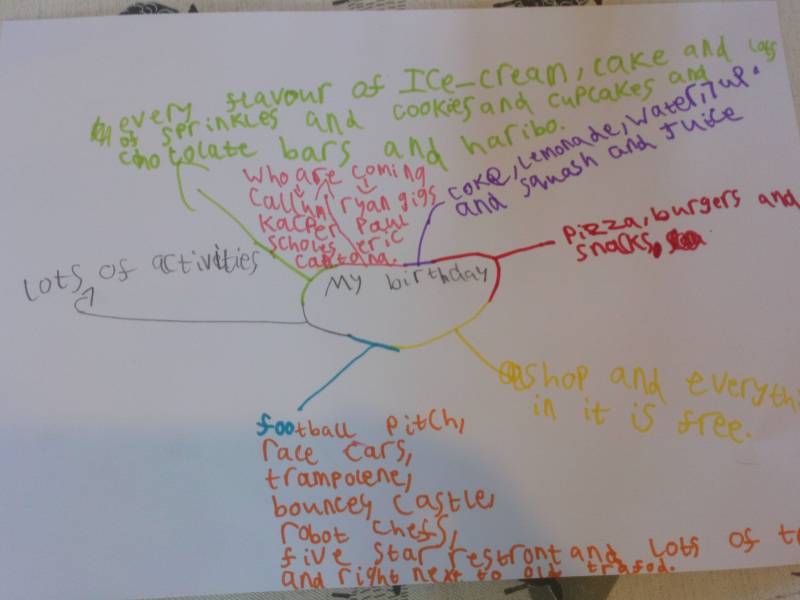 every flavour of Ice-cream, cake and lots
of sprinkles and cookies and cupcakes and
chocolate bars and haribo.
who are coming
callum ryan gigs
kacper paul
scholes eric
cantana.
coke, Lemonade, water, 7up.
and squash and Juice
pizza, burgers and
snacks,
Lots of activities
My birthday
shop and everythi
in it is free.
football pitch,
race cars,
trampolene,
bouncey castle,
robot chefs,
five star restront and lots of t
and right next to old trafod.